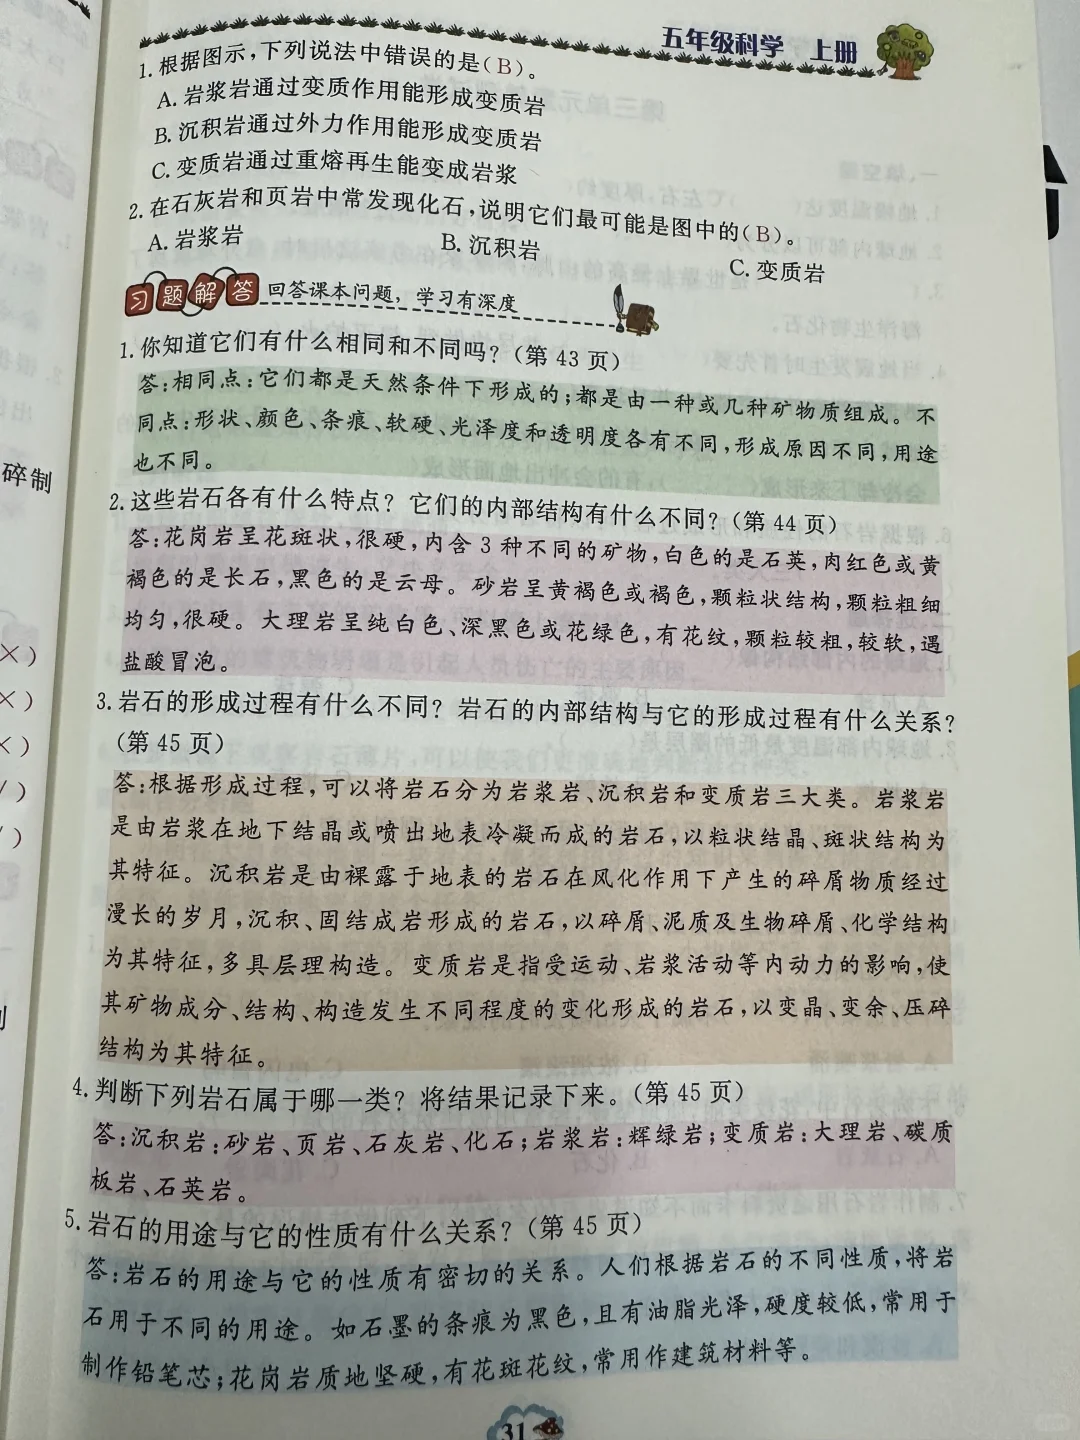 五年级科学 上册
1.根据图示,下列说法中错误的是(B)。
A.岩浆岩通过变质作用能形成变质岩
B.沉积岩通过外力作用能形成变质岩
C.变质岩通过重熔再生能变成岩浆
2.在石灰岩和页岩中常发现化石,说明它们最可能是图中的(B)。
A.岩浆岩 B.沉积岩 C.变质岩
习题解答 回答课本问题,学习有深度
1.你知道它们有什么相同和不同吗?(第43页)
答:相同点:它们都是天然条件下形成的;都是由一种或几种矿物质组成。不
同点:形状、颜色、条痕、软硬、光泽度和透明度各有不同,形成原因不同,用途
也不同。
2.这些岩石各有什么特点?它们的内部结构有什么不同?(第44页)
答:花岗岩呈花斑状,很硬,内含3种不同的矿物,白色的是石英,肉红色或黄
褐色的是长石,黑色的是云母。砂岩呈黄褐色或褐色,颗粒状结构,颗粒粗细
均匀,很硬。大理岩呈纯白色、深黑色或花绿色,有花纹,颗粒较粗,较软,遇
盐酸冒泡。
3.岩石的形成过程有什么不同?岩石的内部结构与它的形成过程有什么关系?
(第45页)
答:根据形成过程,可以将岩石分为岩浆岩、沉积岩和变质岩三大类。岩浆岩
是由岩浆在地下结晶或喷出地表冷凝而成的岩石,以粒状结晶、斑状结构为
其特征。沉积岩是由裸露于地表的岩石在风化作用下产生的碎屑物质经过
漫长的岁月,沉积、固结成岩形成的岩石,以碎屑、泥质及生物碎屑、化学结构
为其特征,多具层理构造。变质岩是指受运动、岩浆活动等内动力的影响,使
其矿物成分、结构、构造发生不同程度的变化形成的岩石,以变晶、变余、压碎
结构为其特征。
4.判断下列岩石属于哪一类?将结果记录下来。(第45页)
答:沉积岩:砂岩、页岩、石灰岩、化石;岩浆岩:辉绿岩;变质岩:大理岩、碳质
板岩、石英岩。
5.岩石的用途与它的性质有什么关系?(第45页)
答:岩石的用途与它的性质有密切的关系。人们根据岩石的不同性质,将岩
石用于不同的用途。如石墨的条痕为黑色,且有油脂光泽,硬度较低,常用于
制作铅笔芯;花岗岩质地坚硬,有花斑花纹,常用作建筑材料等。
31
碎制
×)
×)
×)